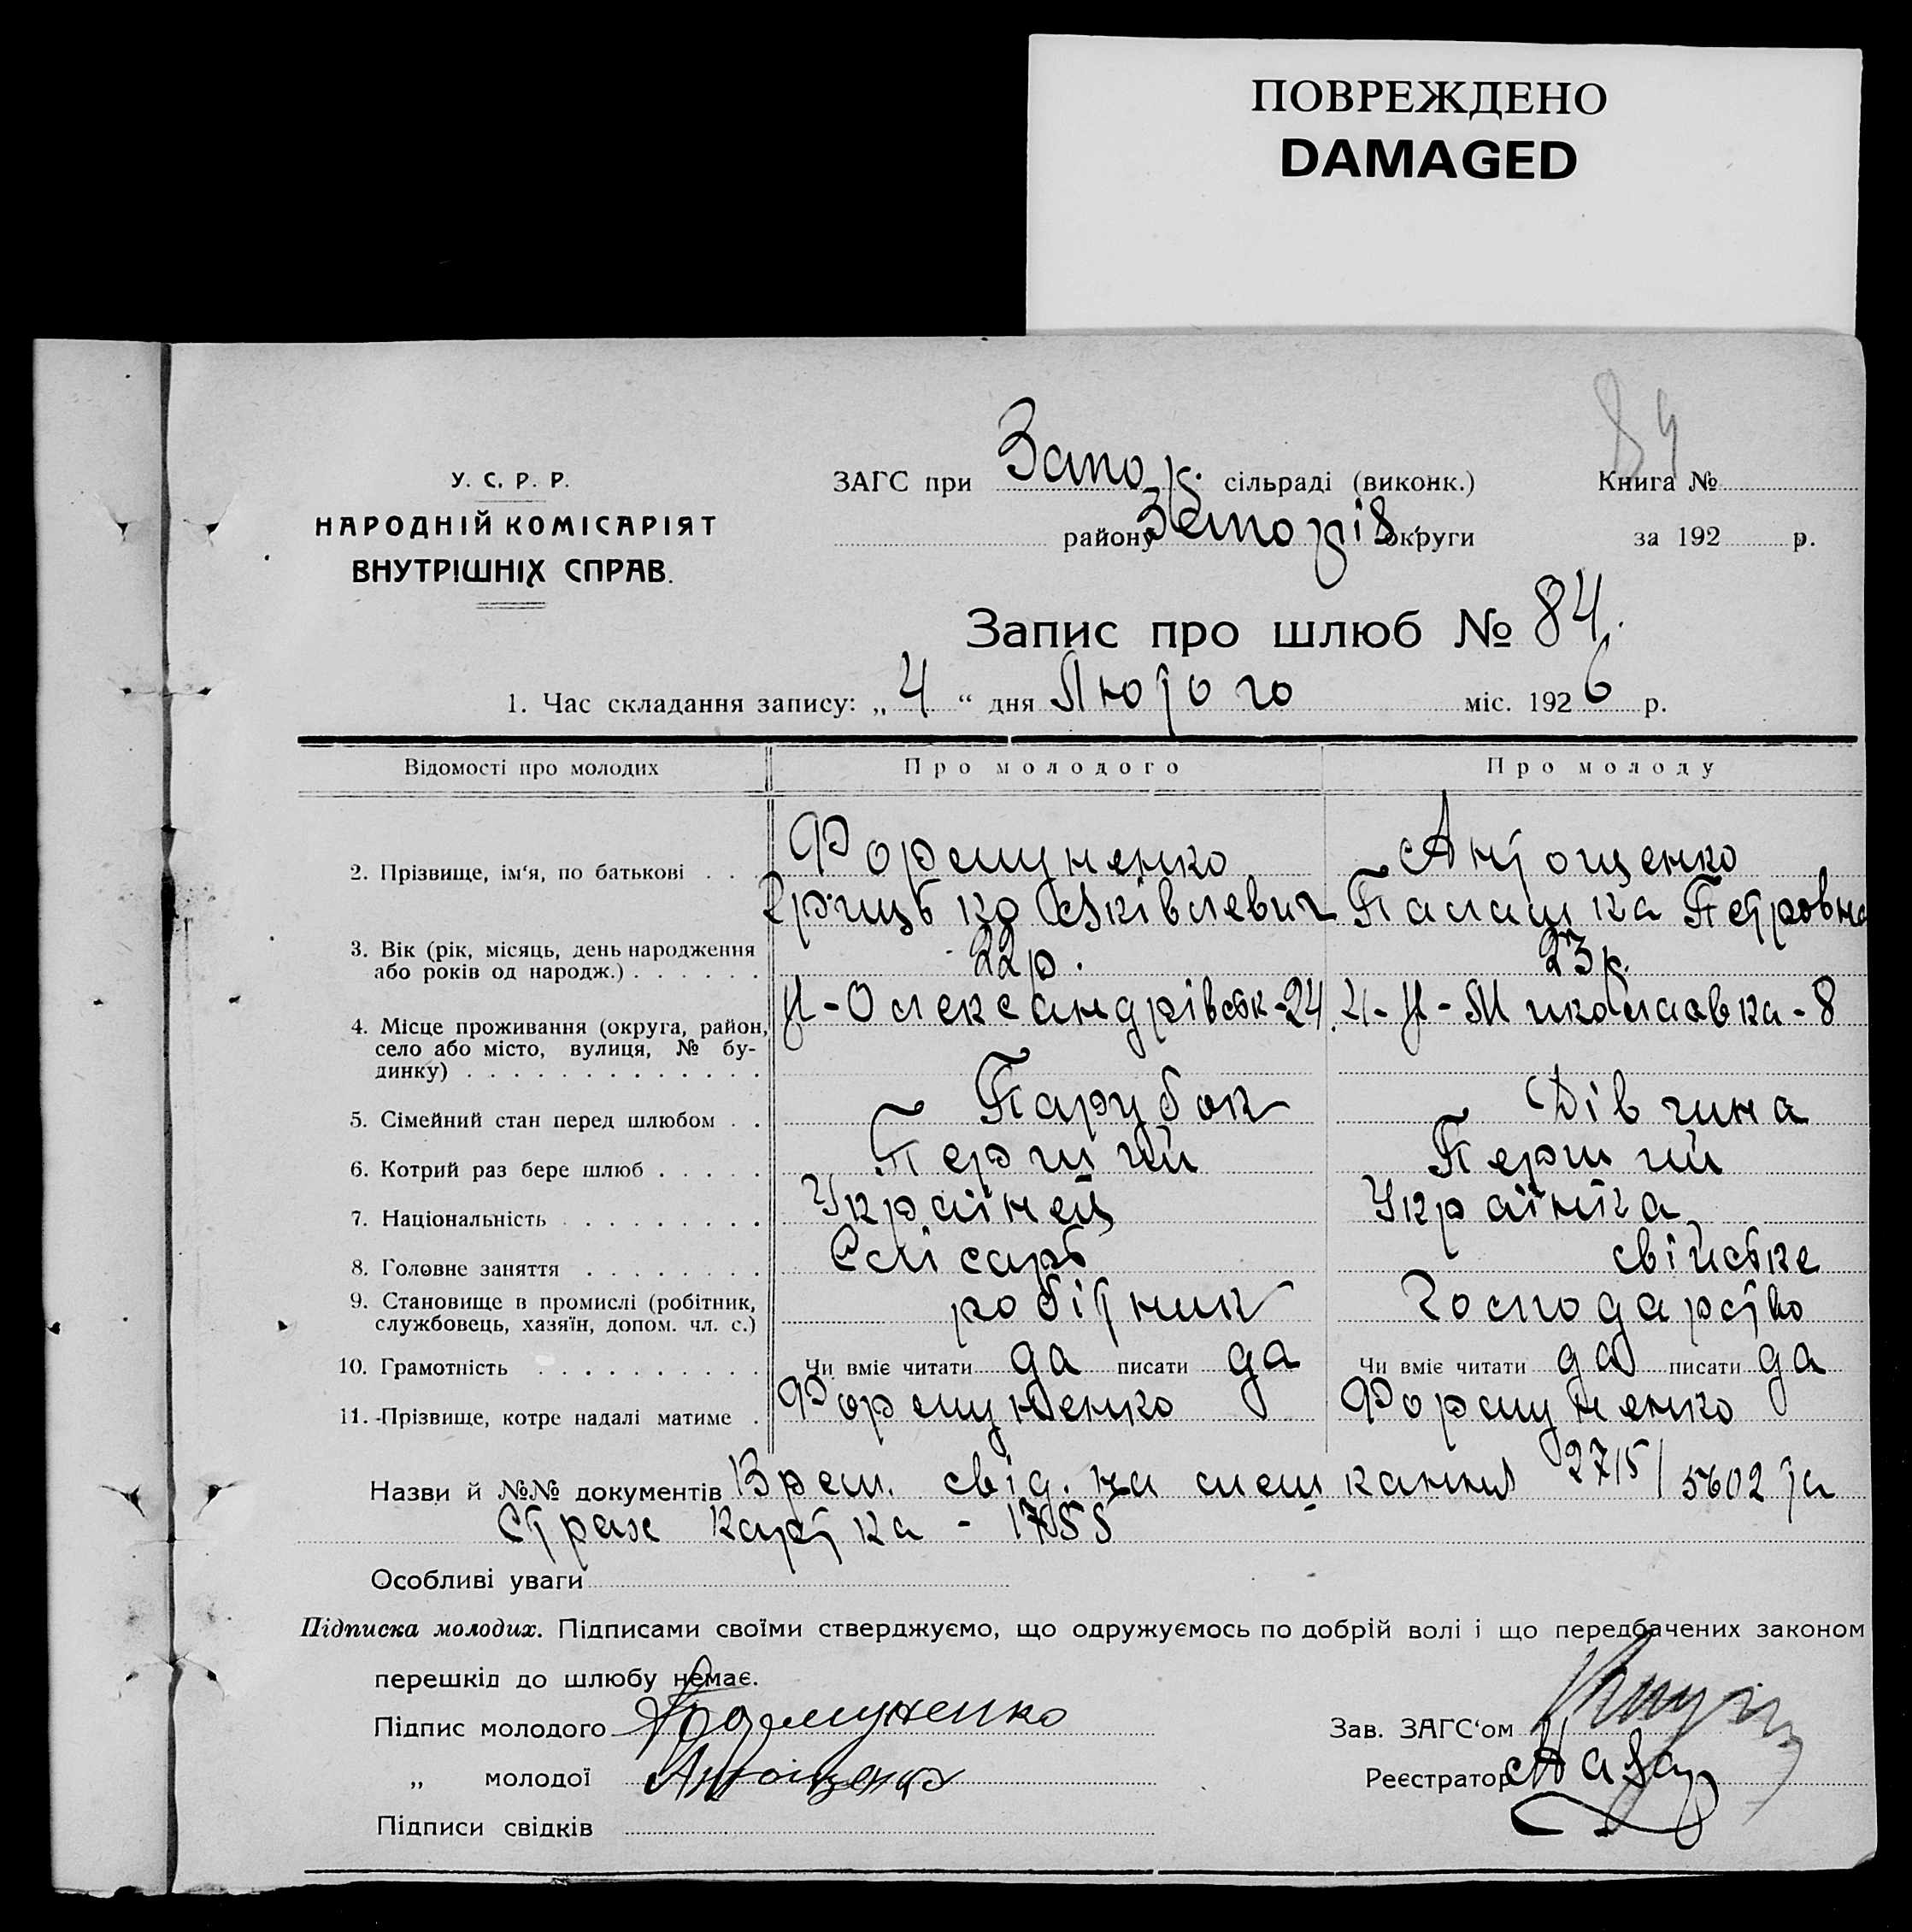 ПОВРЕЖДЕНО
DAMAGED
84
У. С. Р. Р.
НАРОДНІЙ КОМІСАРІЯТ
ВНУТРІШНІХ СПРАВ.
ЗАГС при Запор. сільраді (виконк.)
Книга №
району Запоріз. округи
за 192 р.
Запис про шлюб № 84.
1. Час складання запису: „4“ дня Лютого міс. 1926 р.
Відомості про молодих Про молодого Про молоду
2. Прізвище, ім‘я, по батькові . . . Формуненко Антощенко
Грицько Яківлевич Палашка Петровна
3. Вік (рік, місяць, день народження
або років од народж.) . . . . . . 22 р. 23 р.
4. Місце проживання (округа, район,
село або місто, вулиця, № бу-
динку) . . . . . . . . . . . . .
Н-Олександрівськ-24. Н-Миколаовка-8
5. Сімейний стан перед шлюбом . . Парубок Дівчина
6. Котрий раз бере шлюб . . . . . Перший Перший
7. Національність . . . . . . . . . Українец Українка
8. Головне заняття . . . . . . . . Слісарь свійське
9. Становище в промислі (робітник,
службовець, хазяїн, допом. чл. с.) робітник господарство
10. Грамотність . . . . . . . . . . Чи вміє читати да писати да Чи вміє читати да писати да
11. Прізвище, котре надалі матиме . Формуненко Формуненко
Назви й №№ документів Врем. свід. на мешкання 2715/5602 та
Страх картка - 1755
Особливі уваги
Підписка молодих. Підписами своїми стверджуємо, що одружуємось по добрій волі і що передбачених законом
перешкід до шлюбу немає.
Підпис молодого Формуненко
Зав. ЗАГС‘ом
„ молодої Антощенко
Реєстратор
Підписи свідків